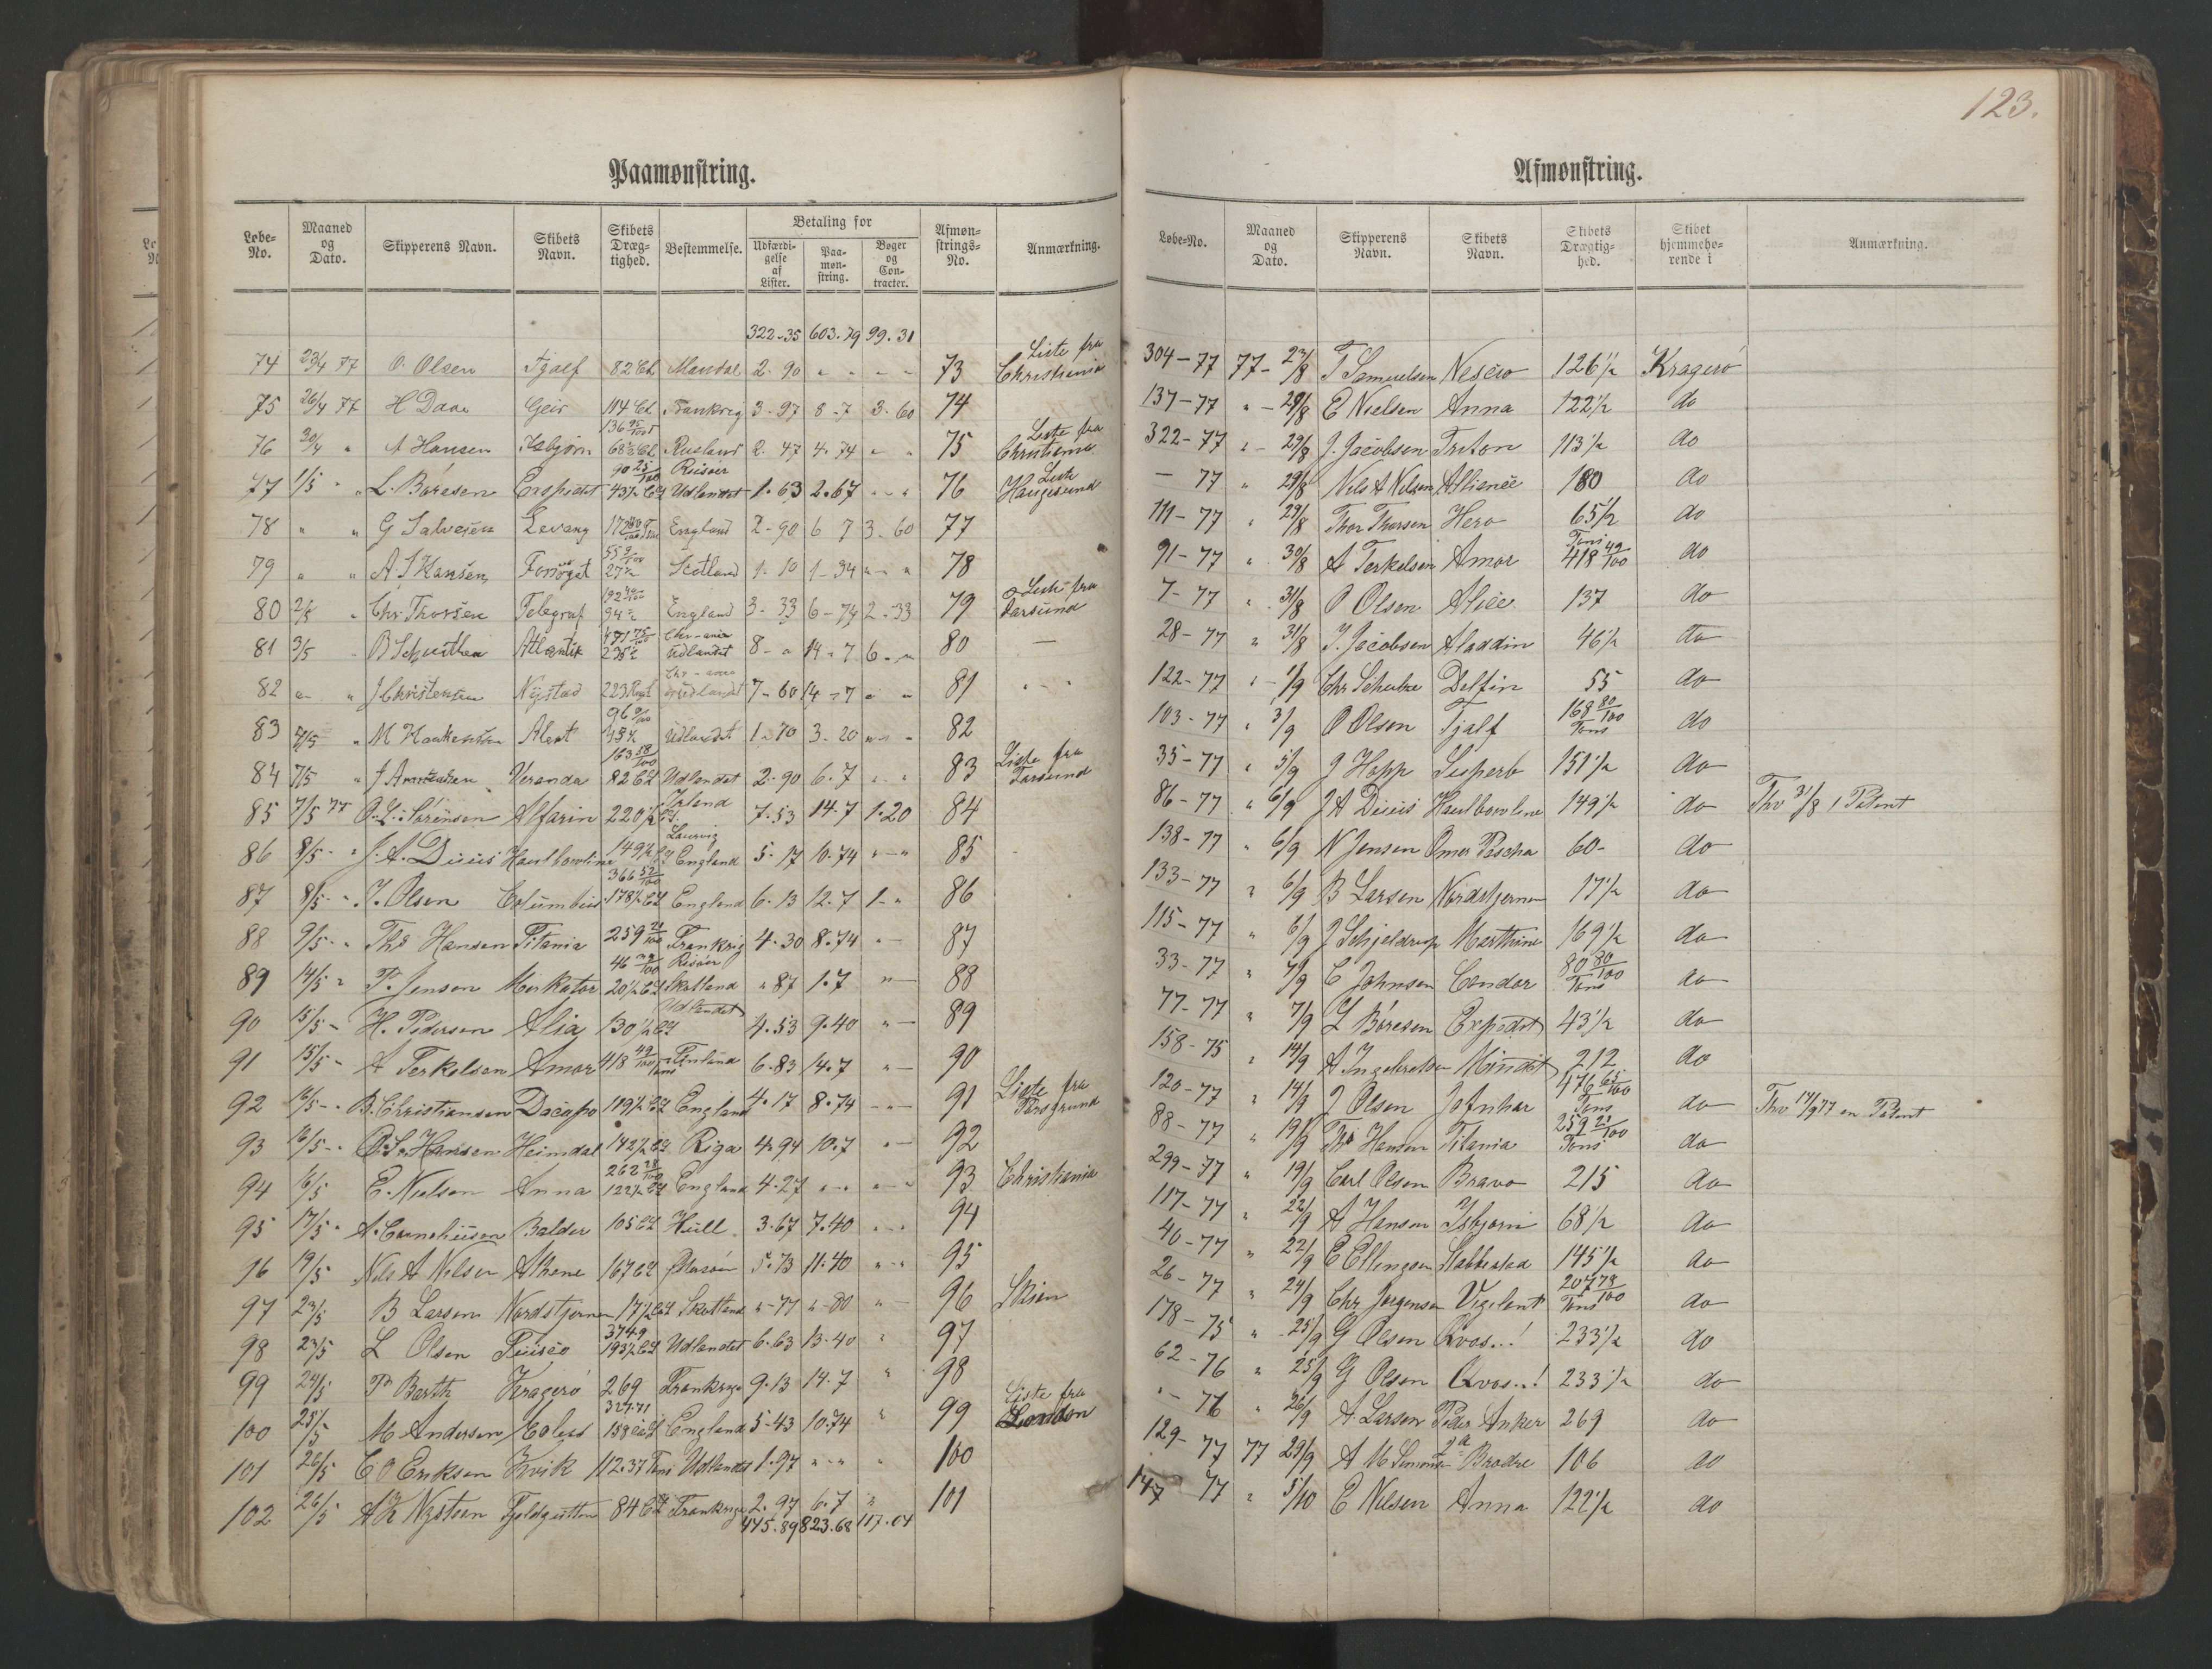 123.
Paamønstring.
Løbe-No. Maaned og Dato. Skipperens Navn. Skibets Navn. Skibets Dræg-tighed. Bestemmelse. Betaling for Udfærdi-gelse af Lister. Paa-møn-string. Bøger og Con-tracter. Afmøn-strings-No. Anmærkning.
322-35 603.79 99.31
74 23/4 77 O. Olsen Tjalf 82 Cl. Mandal 2.90 " - - - 73 Liste fra Christiania
75 26/4 77 H Daae Geir 114 Cl Frankrig 3-97 8-7 3.60 74
76 30/4 " A Hansen Isbjørn 136 95/100 T 68 1/2 Cl Rusland 2.47 4.74 " " 75 Liste fra Christiania
77 1/5 " L. Børesen Expedit 90 25/100 43 1/2 Cl Risøer Udlandet 1.63 2.67 - - - 76 Liste Haugesund
78 " " G Salvesen Levang England 2-90 6 7 3-60 77
79 " " A. S Hansen Forsøget 27 1/2 Scotland 1.10 1-34 " " 78
80 2/5 " Chr. Thorsen Telegraf 94 1/2 England 3-33 6-74 2-33 79 Liste fra Farsund
81 3/5 Atlantik 471 75/100 235 1/2 Chr-ania Udlandet 8-" 14-7 6-" 80 —
82 " " J Christensen Nystad 223 Chr-ania Udlandet 7-60 14-7 " - 81 " - "
83 4/5 " M Haakensen Alert Udlandet 1-70 3-20 " - - 82
84 7/5 " J Amundsen Veranda 163 58/100 82 Cl Udlandet 2-90 6.7 " " 83 Liste fra Farsund
85 7/5 77 O. L. Sørensen Alfarin 220 1/2 Cl. Irland 7.53 14.7 1.20 84
86 8/5 - " J. A. Duus Haulbowline 149 1/2 Cl Laurvig England 5.17 10.74 " - " 85
87 8/5 - " J. Olsen Columbus 366 52/100 178 1/2 Cl England 6.13 12.7 1-" 86
88 9/5 - " Ths Hansen Titania 259 21/100 Frankrig 4.30 8.74 " — 87
89 14/5 " T. Jensen Merkator 20 1/2 Cl Risøer Skotland " 87 1.7 " — 88
90 15/5 - H. Pedersen Alia 130 1/2 Cl Udlandet 4.53 9.40 " — 89
91 15/5 - A Terkelsen Amor 418 49/100 Tons Finland 6.83 14.7 " — 90
92 16/5 - " B. Christiansen Dacapo 119 1/2 Cl England 4.17 8.74 — " — 91 Liste fra Porsgrund
93 16/5 - " O. S. Hansen Heimdal 142 1/2 Cl Riga 4.94 10.7 " — 92
94 16/5 E. Nielsen Anna 262 122 1/2 Cl England 4.27 " - " " — " 93 Christiania
95 17/5 " A. Corneliusen Balder 105 Cl Hull 3.67 7.40 " - " 94
96 19/5 Nils A Nilsen Athene 167 Cl 5.73 11.40 " - " 95
97 23/5 B Larsen Nordstjernen 17 1/2 Cl Skotland "-77 "-80 " — 96 Skien
98 23/5 L Olsen 3749 193 1/2 Cl Udlandet 6.63 13.40 " 97
99 24/5 P Barth Kragerø 269 Frankrige 9.13 14.7 " 98
100 25/5 M Andersen Eolus 327.71 158 Cl England 5-43 10.74 " 99 Liste fra London
101 26/5 C O Eriksen Kvik 112.37 Tons Udlandet 1.97 " - " " 100
102 26/5 A K Nystøen Fjeldgutten 84 Cl Frankrige 2.97 6.7 " 101
445.89 823.68 117.04
Afmønstring.
Løbe-No. Maaned og Dato. Skipperens Navn. Skibets Navn. Skibets Drægtig-hed. Skibet hjemmehø-rende i Anmærkning.
304-77 77- 23/8 T Samuelsen 126 1/2 Kragerø
137-77 " - 29/8 E Nielsen Anna 122 1/2 do
322-77 " - 29/8 J. Jacobsen Triton 113 1/2 do
— 77 " 29/8 Nils A Nilsen Alliance 180 do
111-77 " 29/8 Thor Thorsen Hero 65 1/2 do
91-77 " 30/8 A Terkelsen Amor Tons 418 49/100 do
7-77 " 31/8 O Olsen Alice 137 do
28-77 " 31/8 J. Jacobsen Aladdin 46 1/2 do
122-77 " - 1/9 Chr Schulze Delfin 55 do
103-77 " 3/9 O Olsen Tjalf 168 80/100 Tons do
35-77 " 5/9 J Hopp Superb 151 1/2 do
86-77 " 6/9 J A Duus Haulbowline 149 1/2 do Thv 31/8 1 Patent
138-77 " 6/9 N Jensen Omer Pascha 60- do
133-77 " 6/9 B Larsen Nordstjernen 17 1/2 do
115-77 " 6/9 J Schjeldrup Marthine 169 1/2 do
33-77 " 7/9 C Johnsen Condor 80 80/100 Tons do
77-77 " 7/9 L Børesen Expedit 43 1/2 do
158-75 " 14/9 A Ingebretsen Mindet 212 do
120-77 " 14/9 J Olsen Jafnhar 476 65/100 Tons do Thv 17/9 77 en Patent
88-77 " 19/9 Ths Hansen Titania 259 21/100 Tons do
299-77 " 19/9 Carl Olsen Bravo 215 do
117-77 " 22/9 A Hansen Isbjørn 68 1/2 do
40-77 " 22/9 E Ellingsen Stabbestad 145 1/2 do
26-77 " 24/9 Chr Jørgensen Vigilant 207 78/100 Tons do
178-75 " - 25/9 G Olsen Qvos..! 233 1/2 do
62-76 " 25/9 G Olsen Qvos..! 233 1/2 do
" - 76 " 26/9 A. Larsen Peder Anker 269 do
129-77 77 29/9 A M Simonsen 2de Brødre 106 do
147 77 " 5/10 E Nilsen Anna 122 1/2 do